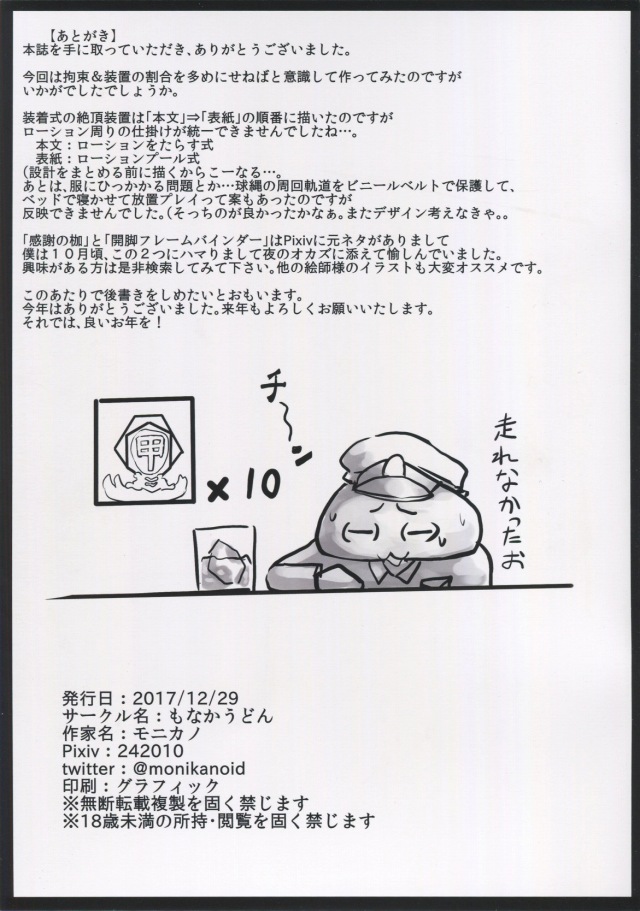 【あとがき】
本誌を手に取っていただき、ありがとうございました。
今回は拘束&装置の割合を多めにせねばと意識して作ってみたのですが
いかがでしたでしょうか。
装着式の絶頂装置は「本文」⇒「表紙」の順番に描いたのですが
ローション周りの仕掛けが統一できませんでしたね…。
本文：ローションをたらす式
表紙：ローションプール式
(設計をまとめる前に描くからこーなる…。
あとは、服にひっかかる問題とか…球縄の周回軌道をビニールベルトで保護して、
ベッドで寝かせて放置プレイって案もあったのですが
反映できませんでした。(そっちのが良かったかなぁ。またデザイン考えなきゃ。。
「感謝の枷」と「開脚フレームバインダー」はPixivに元ネタがありまして
僕は１０月頃、この２つにハマりまして夜のオカズに添えて愉しんでいました。
興味がある方は是非検索してみて下さい。他の絵師様のイラストも大変オススメです。
このあたりで後書きをしめたいとおもいます。
今年はありがとうございました。来年もよろしくお願いいたします。
それでは、良いお年を！
チ〜ン
走れなかったお
甲
×10
発行日：2017/12/29
サークル名：もなかうどん
作家名：モニカノ
Pixiv：242010
twitter：@monikanoid
印刷：グラフィック
※無断転載複製を固く禁じます
※18歳未満の所持・閲覧を固く禁じます